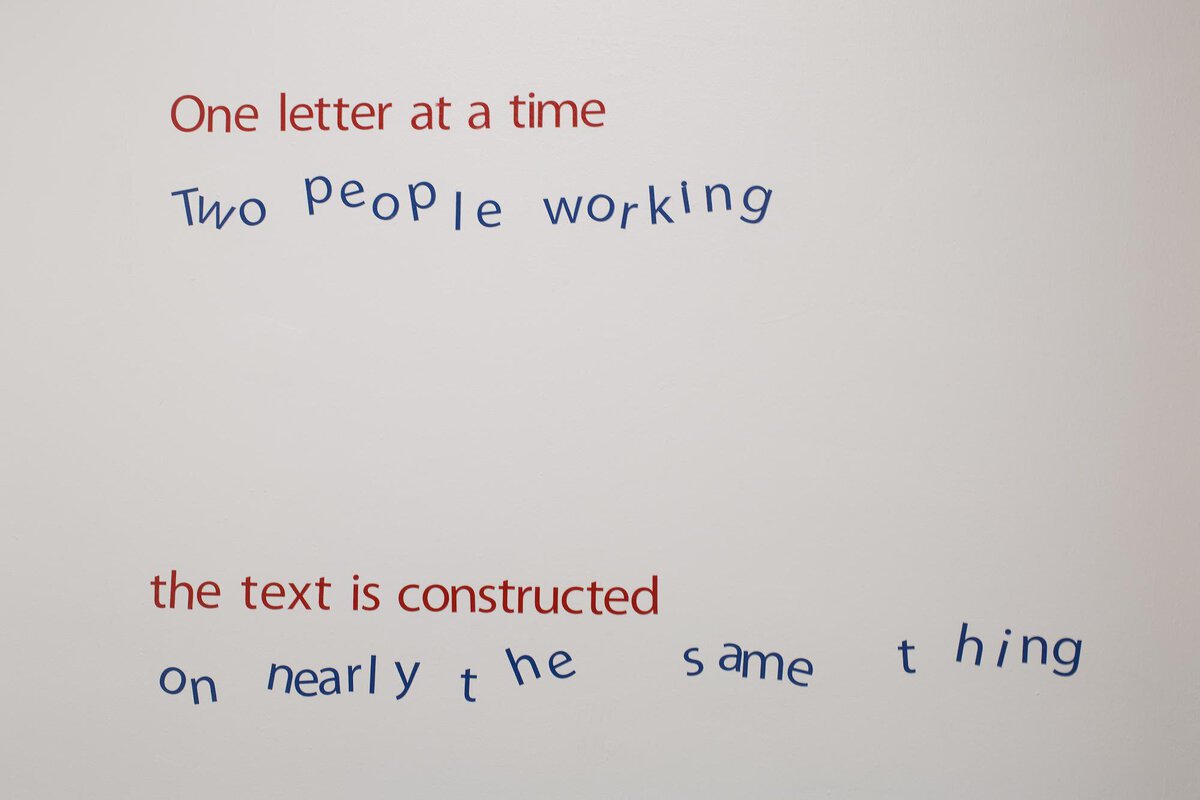 One letter at a time
Two people working
the text is constructed
on nearly the same thing